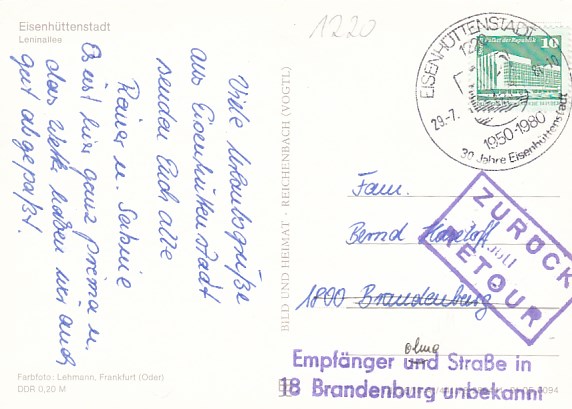 Eisenhüttenstadt
Leninallee
Viele Urlaubsgrüße
aus Eisenhüttenstadt
senden Euch alle
Rainer u. Sabine
Es ist hier ganz prima u.
das Wetter haben wir auch
gut abgepaßt.
Farbfoto: Lehmann, Frankfurt (Oder)
DDR 0,20 M
BILD UND HEIMAT · REICHENBACH (VOGTL)
1220
EISENHÜTTENSTADT
1220
29.-7.
1950-1980
30 Jahre Eisenhüttenstadt
10
Fam.
Bernd
1800 Brandenburg
ZURÜCK
RETOUR
ohne
Empfänger und Straße in
18 Brandenburg unbekannt